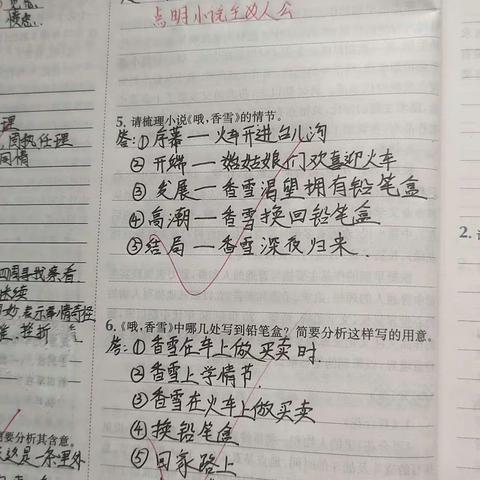 点明小说主要人公
5. 请梳理小说《哦,香雪》的情节。
答:① 序幕 — 火车开进台儿沟
② 开端 — 姑娘们欢喜迎火车
③ 发展 — 香雪渴望拥有铅笔盒
④ 高潮 — 香雪换回铅笔盒
⑤ 结局 — 香雪深夜归来.
6.《哦,香雪》中哪几处写到铅笔盒?简要分析这样写的用意。
答:① 香雪在车上做买卖时.
② 香雪上学情节.
③ 香雪在火车上做买卖
④ 换铅笔盒
⑤ 回家路上
理
同情
四周寻找亲着
挫折
要分析其含意。
这是一条里外
2.